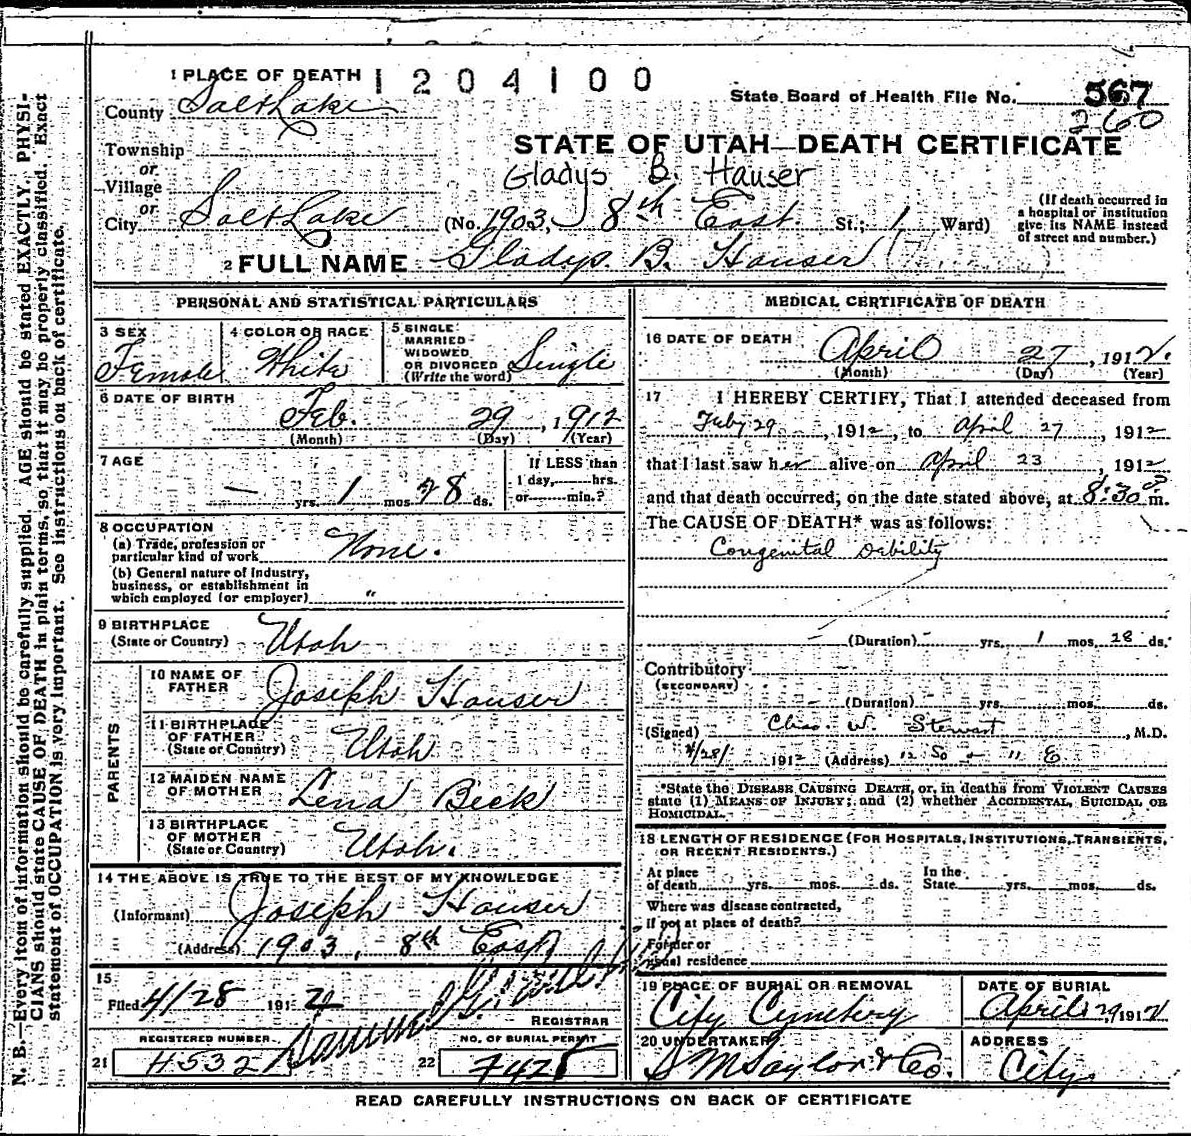 1 PLACE OF DEATH 1204100
State Board of Health File No. 567
260
County Salt Lake
STATE OF UTAH—DEATH CERTIFICATE
Township
or
Village
Gladys B. Hauser
or
City Salt Lake (No. 1903, 8th East St.; 1 Ward)
(If death occurred in a hospital or institution give its NAME instead of street and number.)
2 FULL NAME Gladys. B. Hauser
PERSONAL AND STATISTICAL PARTICULARS
3 SEX Female
4 COLOR OR RACE White
5 SINGLE MARRIED WIDOWED OR DIVORCED (Write the word) Single
6 DATE OF BIRTH Feb. 29, 1912
(Month) (Day) (Year)
7 AGE — yrs. 1 mos. 28 ds.
If LESS than
1 day, hrs.
or min.?
8 OCCUPATION
(a) Trade, profession or
particular kind of work None.
(b) General nature of Industry,
business, or establishment in
which employed (or employer) "
9 BIRTHPLACE
(State or Country) Utah
PARENTS
10 NAME OF
FATHER Joseph Hauser
11 BIRTHPLACE
OF FATHER
(State or Country) Utah
12 MAIDEN NAME
OF MOTHER Lena Beck
13 BIRTHPLACE
OF MOTHER
(State or Country) Utah.
14 THE ABOVE IS TRUE TO THE BEST OF MY KNOWLEDGE
(Informant) Joseph Hauser
(Address) 1903, 8th East
15
Filed 4/28 191 2
REGISTRAR
REGISTERED NUMBER.
21 H532
NO. OF BURIAL PERMIT
22 7428
MEDICAL CERTIFICATE OF DEATH
16 DATE OF DEATH April 27, 1912.
(Month) (Day) (Year)
17 I HEREBY CERTIFY, That I attended deceased from
Feby 29, 1912, to April 27, 1912
that I last saw her alive on April 23, 1912
and that death occurred, on the date stated above, at 8:30 P m.
The CAUSE OF DEATH* was as follows:
Congenital Debility
(Duration) — yrs. 1 mos. 28 ds.
Contributory
(SECONDARY)
(Duration) yrs. mos. ds.
(Signed) Chas W. Stewart, M.D.
4/28/ 1912 (Address) 12 So - 11 E
*State the DISEASE CAUSING DEATH, or, in deaths from VIOLENT CAUSES
state (1) MEANS OF INJURY; and (2) whether ACCIDENTAL, SUICIDAL OR
HOMICIDAL.
18 LENGTH OF RESIDENCE (FOR HOSPITALS, INSTITUTIONS, TRANSIENTS,
OR RECENT RESIDENTS.)
At place
of death yrs. mos. ds.
In the
State yrs. mos. ds.
Where was disease contracted,
if not at place of death?
Former or
usual residence
19 PLACE OF BURIAL OR REMOVAL
City Cemetery
DATE OF BURIAL
April 29 1912
20 UNDERTAKER
S M Taylor & Co.
ADDRESS
City
READ CAREFULLY INSTRUCTIONS ON BACK OF CERTIFICATE
N. B.—Every item of information should be carefully supplied. AGE should be stated EXACTLY. PHYSI-
CIANS should state CAUSE OF DEATH in plain terms, so that it may be properly classified. Exact
statement of OCCUPATION is very important. See instructions on back of certificate.